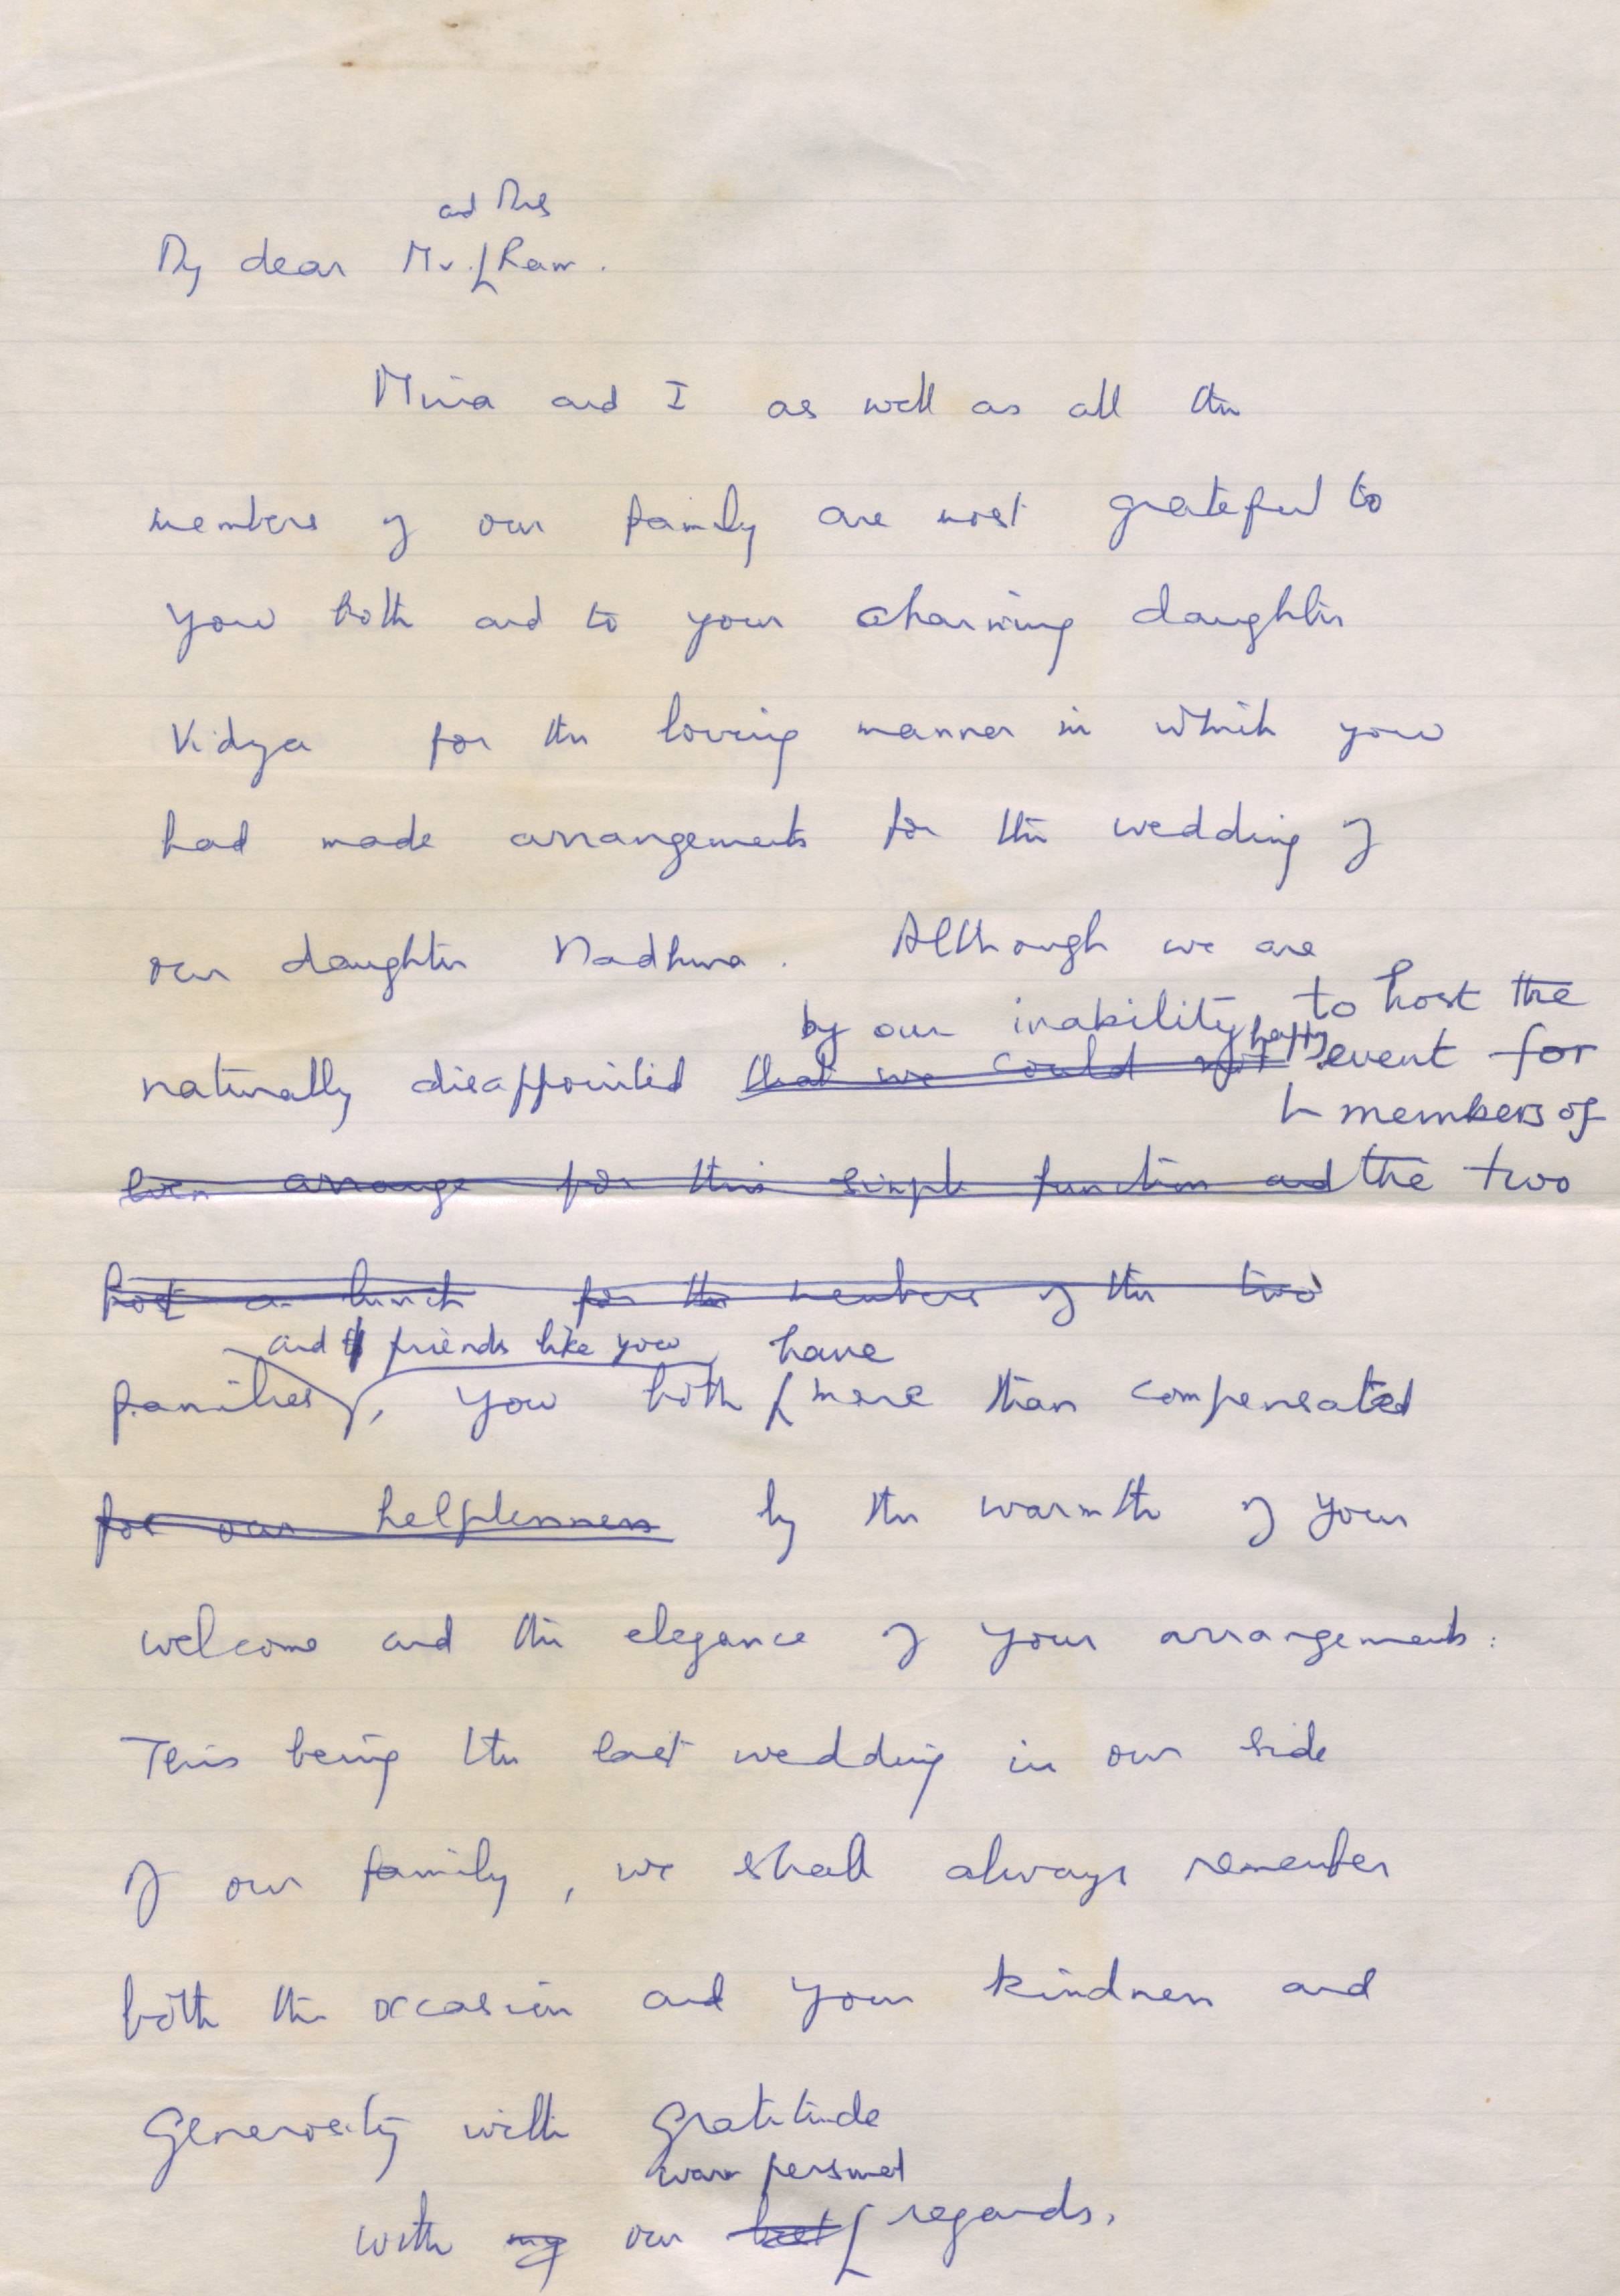 and Mrs
My dear Mr. Ram.
Mira and I as well as all the
members of our family are most grateful to
you both and to your charming daughter
Vidya for the loving manner in which you
had made arrangements for the wedding of
our daughter Madhura. Although we are
by our inability to host the
naturally disappointed that we could not happy event for
members of
even arrange for this simple function and the two
host a lunch for the members of the two
and friends like you have
families, you both more than compensated
for our helplessness by the warmth of your
welcome and the elegance of your arrangements.
This being the last wedding in our side
of our family, we shall always remember
both the occasion and your kindness and
generosity with gratitude
warm personal
with my our best regards.